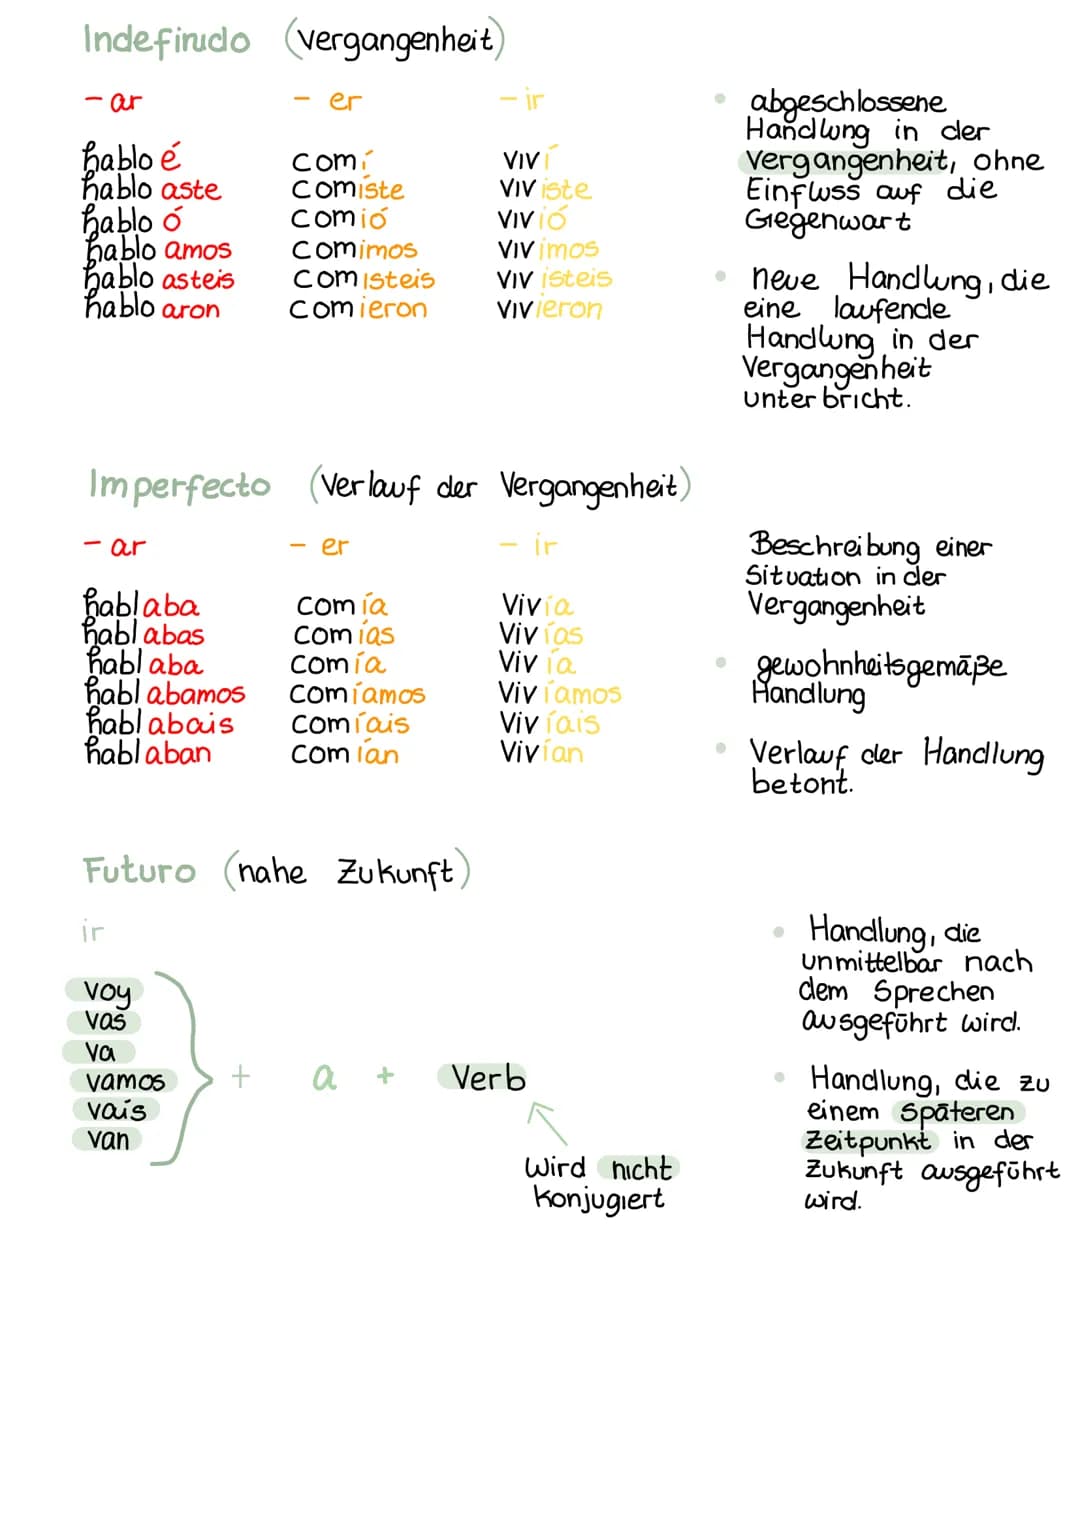 Indefinido (Vergangenheit)
- ar - er - ir
hablo é comí viví
hablo aste comiste viviste
hablo ó comió vivió
hablo amos comimos vivimos
hablo asteis comisteis vivisteis
hablo aron comieron vivieron
• abgeschlossene
Handlung in der
Vergangenheit, ohne
Einfluss auf die
Gegenwart
• neue Handlung, die
eine laufende
Handlung in der
Vergangenheit
unterbricht.
Imperfecto (Verlauf der Vergangenheit)
- ar - er - ir
hablaba comía Vivía
hablabas comías Vivías
hablaba comía Vivía
hablabamos comíamos Vivíamos
hablabais comíais Vivíais
hablaban comían Vivían
Beschreibung einer
Situation in der
Vergangenheit
• gewohnheitsgemäße
Handlung
• Verlauf der Handlung
betont.
Futuro (nahe Zukunft)
ir
voy
vas
va
vamos
vais
van
+ a + Verb
wird nicht
konjugiert
• Handlung, die
unmittelbar nach
dem Sprechen
ausgeführt wird.
• Handlung, die zu
einem späteren
Zeitpunkt in der
Zukunft ausgeführt
wird.